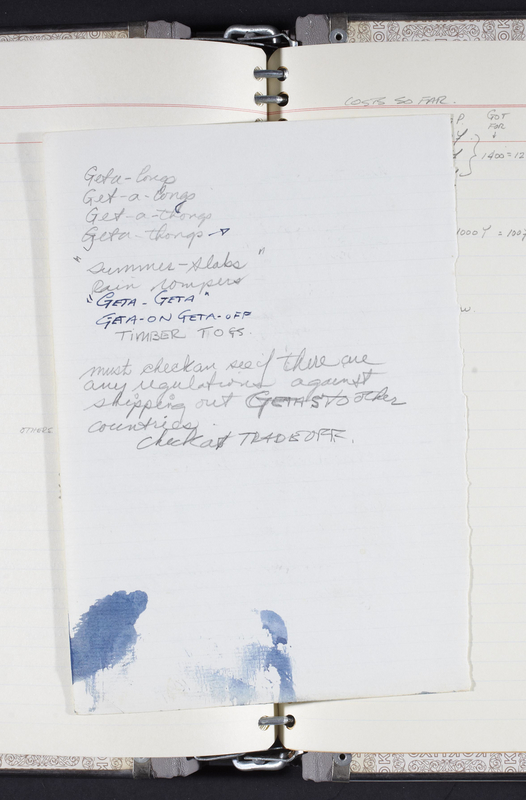 COSTS SO FAR.
GOT
FOR
P
1400 = 12
1000 Y = 100
w.
OTHERS
Geta-longs
Get-a-longs
Get-a-thongs
Geta-thongs
"Summer-Slabs"
Rain rompers
"GETA-GETA"
GETA-ON GETA-OFF
TIMBER TOGS.
must check an see if there are
any regulations against
shipping out GETAS TO other
countries.
Check at TRADE OFF.